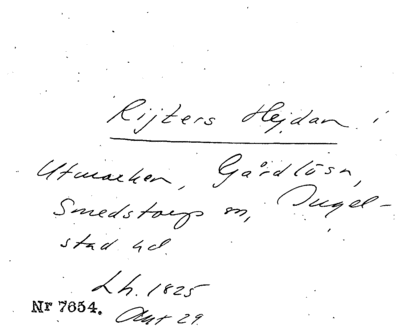 Rijters Hejdan i
Utmarken, Gårdlösa,
Smedstorps sn, Ingel-
stad hd.
Lh. 1825
Akt 29.
Nr 7654.